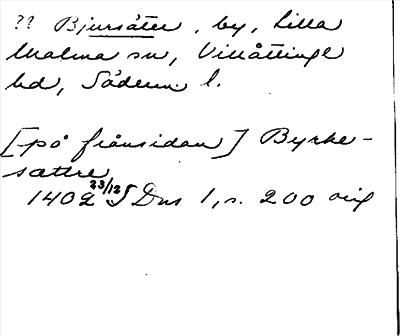 ?? Bjursäter, by, Lilla
Malma sn, Villåttinge
hd, Söderm. l.
[på frånsidan] Byrke-
sættre
1402 23/12 S Dns 1, s. 200 orig